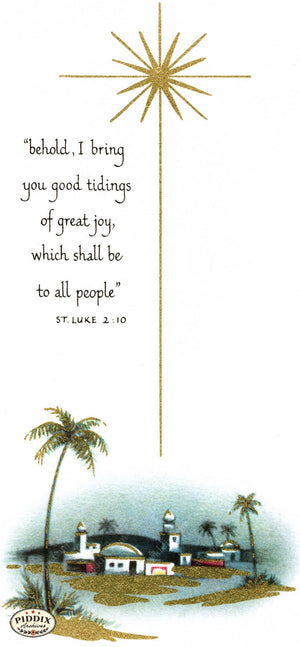 “behold, I bring
you good tidings
of great joy,
which shall be
to all people”
ST. LUKE 2:10
PIDDIX
Archives